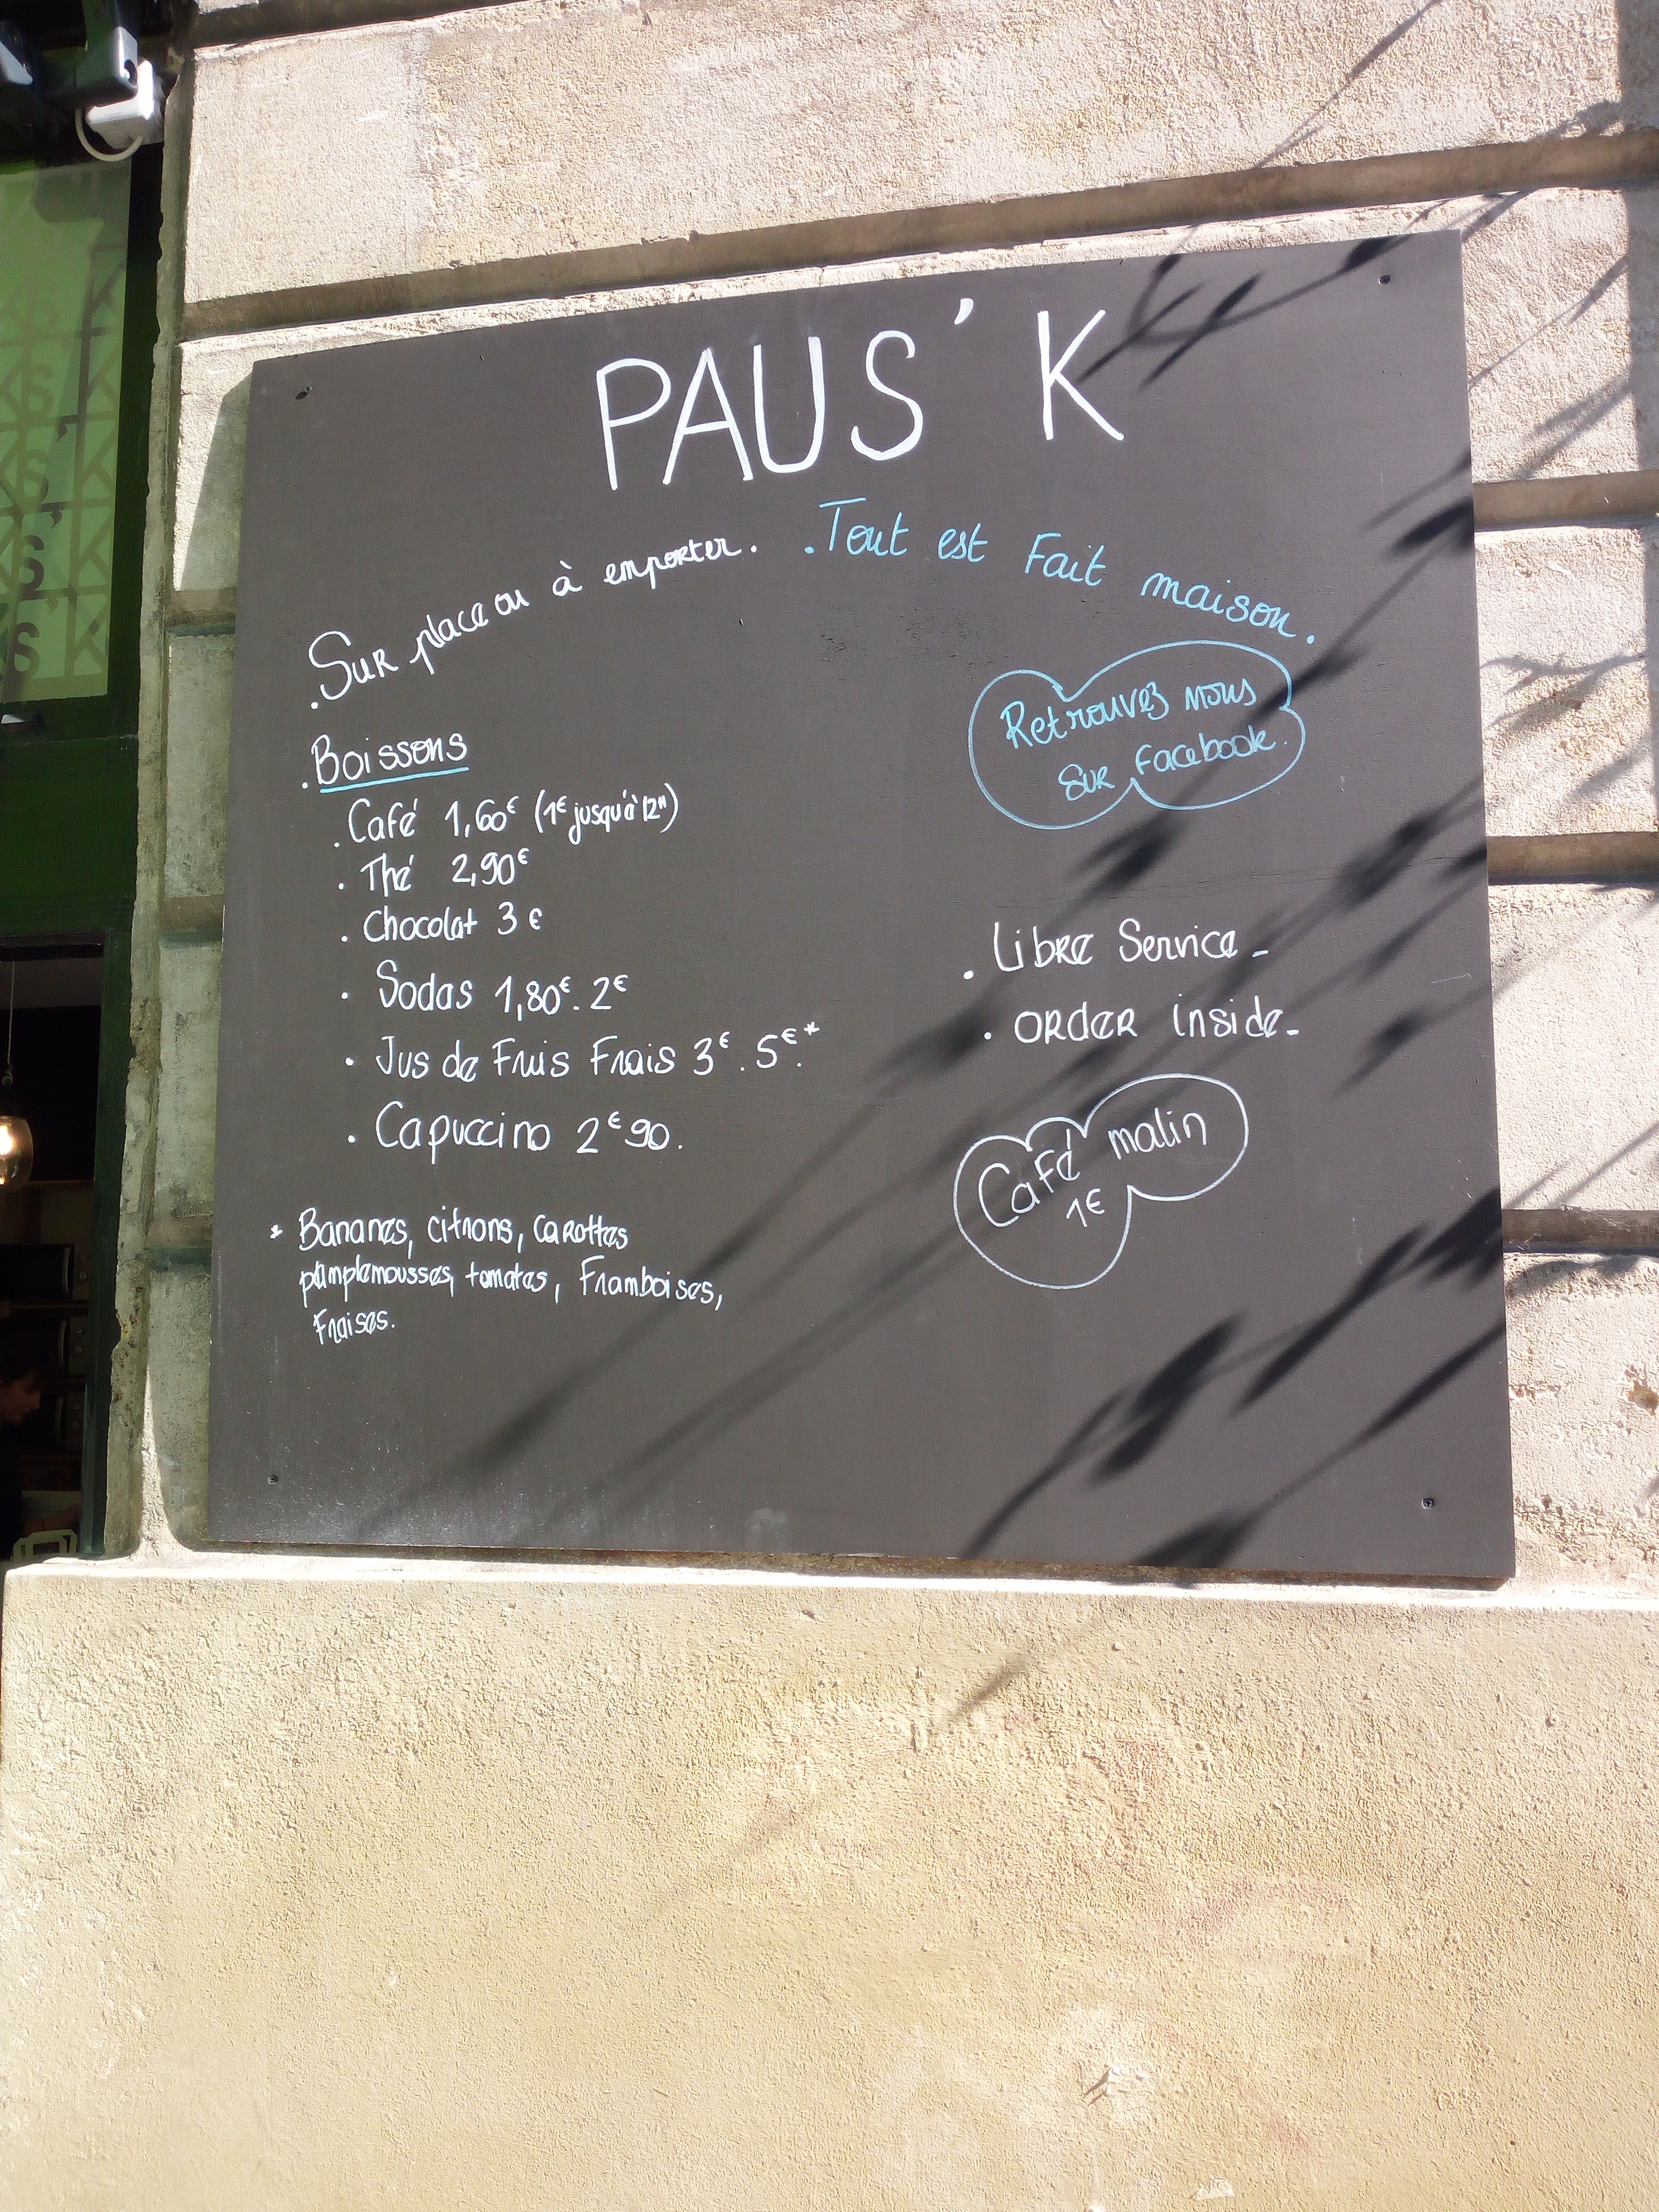 PAUS'K
. Sur place ou à emporter.
. Tout est Fait maison.
Retrouvez nous
sur Facebook.
. Boissons
. Café 1,60€ (1€ jusqu'à 12H)
. Thé 2,90€
. Chocolat 3 €
. Sodas 1,80€. 2€
. Jus de Fruis Frais 3€. 5€.*
. Capuccino 2€90.
* Bananes, citrons, carottes
pamplemousses, tomates, Framboises,
Fraises.
. Libre Service -
. order inside -
Café malin
1€